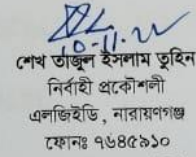 10-11-22
শেখ তাজুল ইসলাম তুহিন
নির্বাহী প্রকৌশলী
এলজিইডি, নারায়ণগঞ্জ
ফোনঃ ৭৬৪৫৯১০